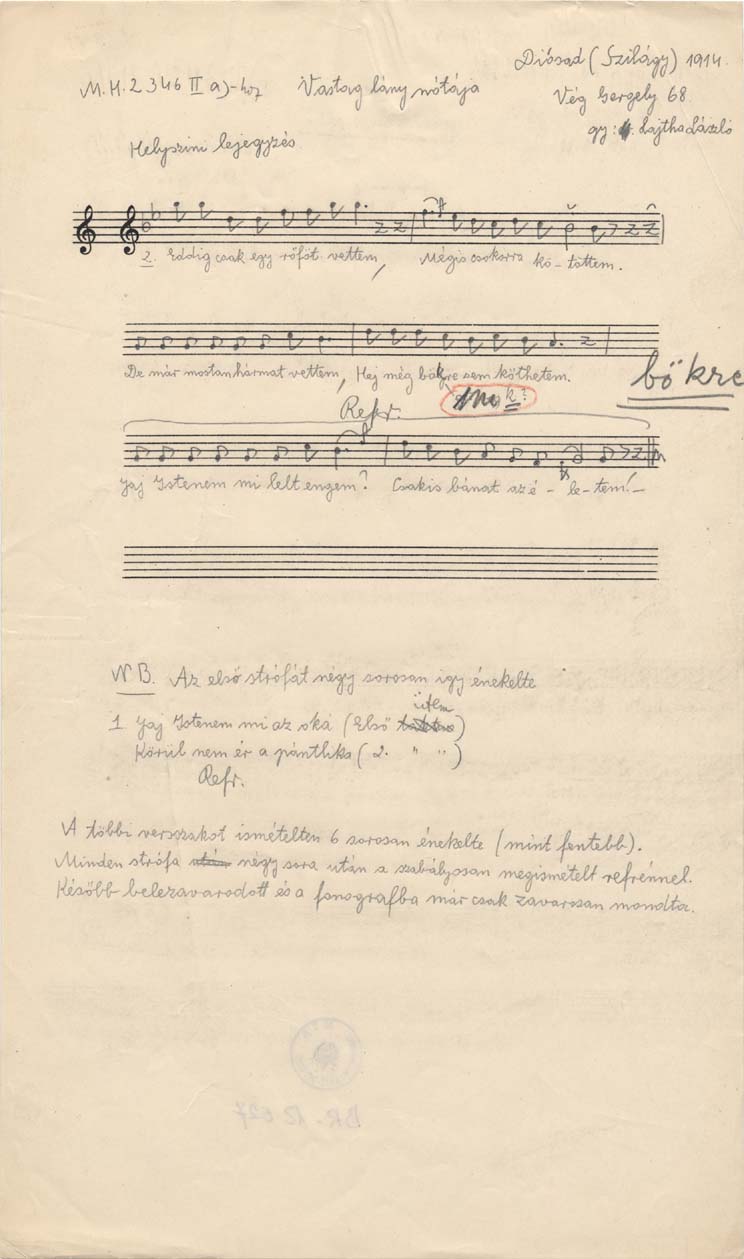 Diósad (Szilágy) 1914.
M.H. 2346 II a)-hoz Vastag lány nótája Vég Gergely 68.
gy: Lajtha László
Helyszini lejegyzés
2. Eddig csak egy rőföt vettem, Mégis csokorra kö-töttem.
De már mostan hármat vettem, Hej még bökre sem köthetem.
bökre
k?
Refr.
Jaj Istenem mi lelt engem? Csakis bánat az é-le-tem!-
NB. Az első strófát négy sorosan igy énekelte
ütem
1 Jaj Istenem mi az oka (Első)
Körül nem ér a pántlika (2. " ")
Refr.
A többi versszakot ismételten 6 sorosan énekelte (mint fentebb).
Minden strófa négy sora után a szabályosan megismételt refrénnel.
Később belezavarodott és a fonografba már csak zavarosan mondta.